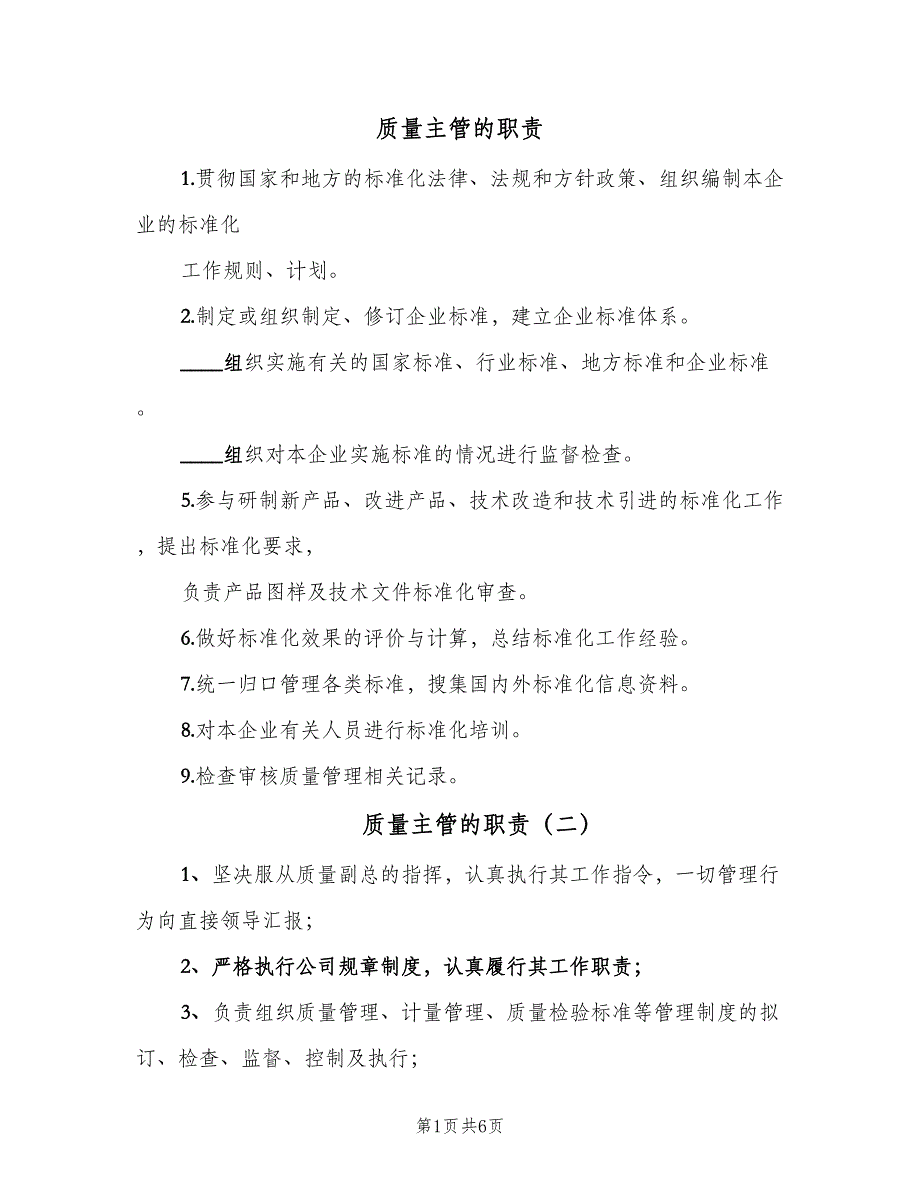 质量主管的职责
1.贯彻国家和地方的标准化法律、法规和方针政策、组织编制本企
业的标准化
工作规则、计划。
2.制定或组织制定、修订企业标准，建立企业标准体系。
____组织实施有关的国家标准、行业标准、地方标准和企业标准
。
____组织对本企业实施标准的情况进行监督检查。
5.参与研制新产品、改进产品、技术改造和技术引进的标准化工作
，提出标准化要求，
负责产品图样及技术文件标准化审查。
6.做好标准化效果的评价与计算，总结标准化工作经验。
7.统一归口管理各类标准，搜集国内外标准化信息资料。
8.对本企业有关人员进行标准化培训。
9.检查审核质量管理相关记录。
质量主管的职责（二）
1、坚决服从质量副总的指挥，认真执行其工作指令，一切管理行
为向直接领导汇报；
2、严格执行公司规章制度，认真履行其工作职责；
3、负责组织质量管理、计量管理、质量检验标准等管理制度的拟
订、检查、监督、控制及执行；
第1页共6页